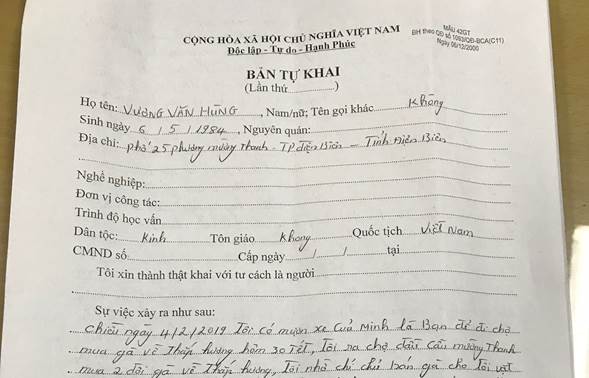 CỘNG HÒA XÃ HỘI CHỦ NGHĨA VIỆT NAM
Độc lập - Tự do - Hạnh Phúc
MẪU 42GT
BH theo QĐ số 1093/QĐ-BCA(C11)
Ngày 06/12/2000
BẢN TỰ KHAI
(Lần thứ..........)
Họ tên: VƯƠNG VĂN HÙNG, Nam/nữ; Tên gọi khác Không
Sinh ngày 6 / 5 / 1984, Nguyên quán:
Địa chỉ: phố 25 phường mường Thanh - TP điện Biên - Tỉnh Điện Biên
Nghề nghiệp:
Đơn vị công tác:
Trình độ học vấn
Dân tộc: Kinh Tôn giáo Không Quốc tịch Việt Nam
CMND số Cấp ngày / / tại
Tôi xin thành thật khai với tư cách là người
Sự việc xảy ra như sau:
Chiều ngày 4/2/2019 Tôi có mượn xe Của Minh là Bạn để đi chợ
mua gà về Thắp hương hôm 30 Tết, Tôi ra chợ đầu Cầu mường Thanh
mua 2 đôi gà về Thắp hương, Tôi nhờ chị chủ bán gà cho Tôi vặt